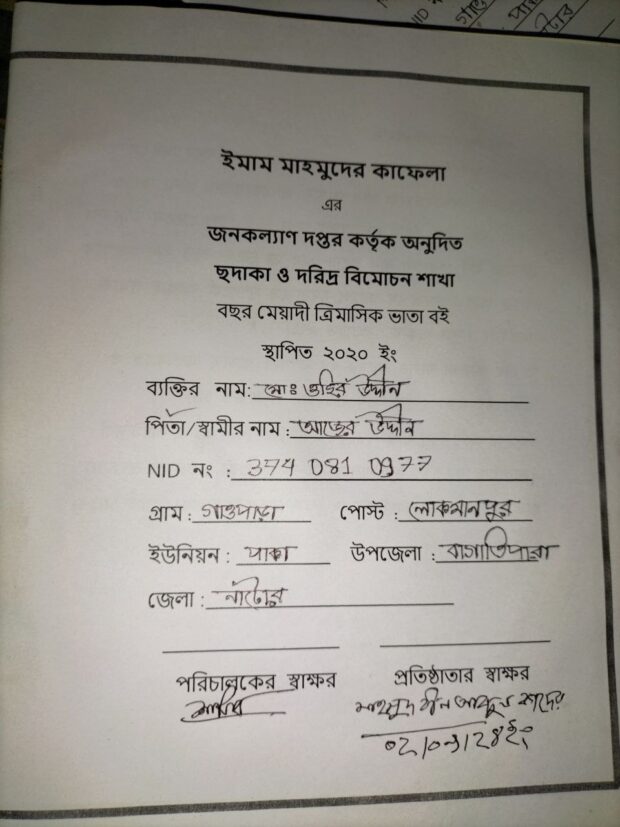 NID
ইমাম মাহমুদের কাফেলা
এর
জনকল্যাণ দপ্তর কর্তৃক অনুদিত
ছদাকা ও দরিদ্র বিমোচন শাখা
বছর মেয়াদী ত্রিমাসিক ভাতা বই
স্থাপিত ২০২০ ইং
ব্যক্তির নাম: মোঃ ওহির উদ্দীন
পিতা/স্বামীর নাম : উদ্দীন
NID নং : 374 081 0977
গ্রাম : গাওপাড়া পোস্ট : লোকমানপুর
ইউনিয়ন : পাকা উপজেলা : বাগাতিপারা
জেলা : নাটোর
পরিচালকের স্বাক্ষর প্রতিষ্ঠাতার স্বাক্ষর